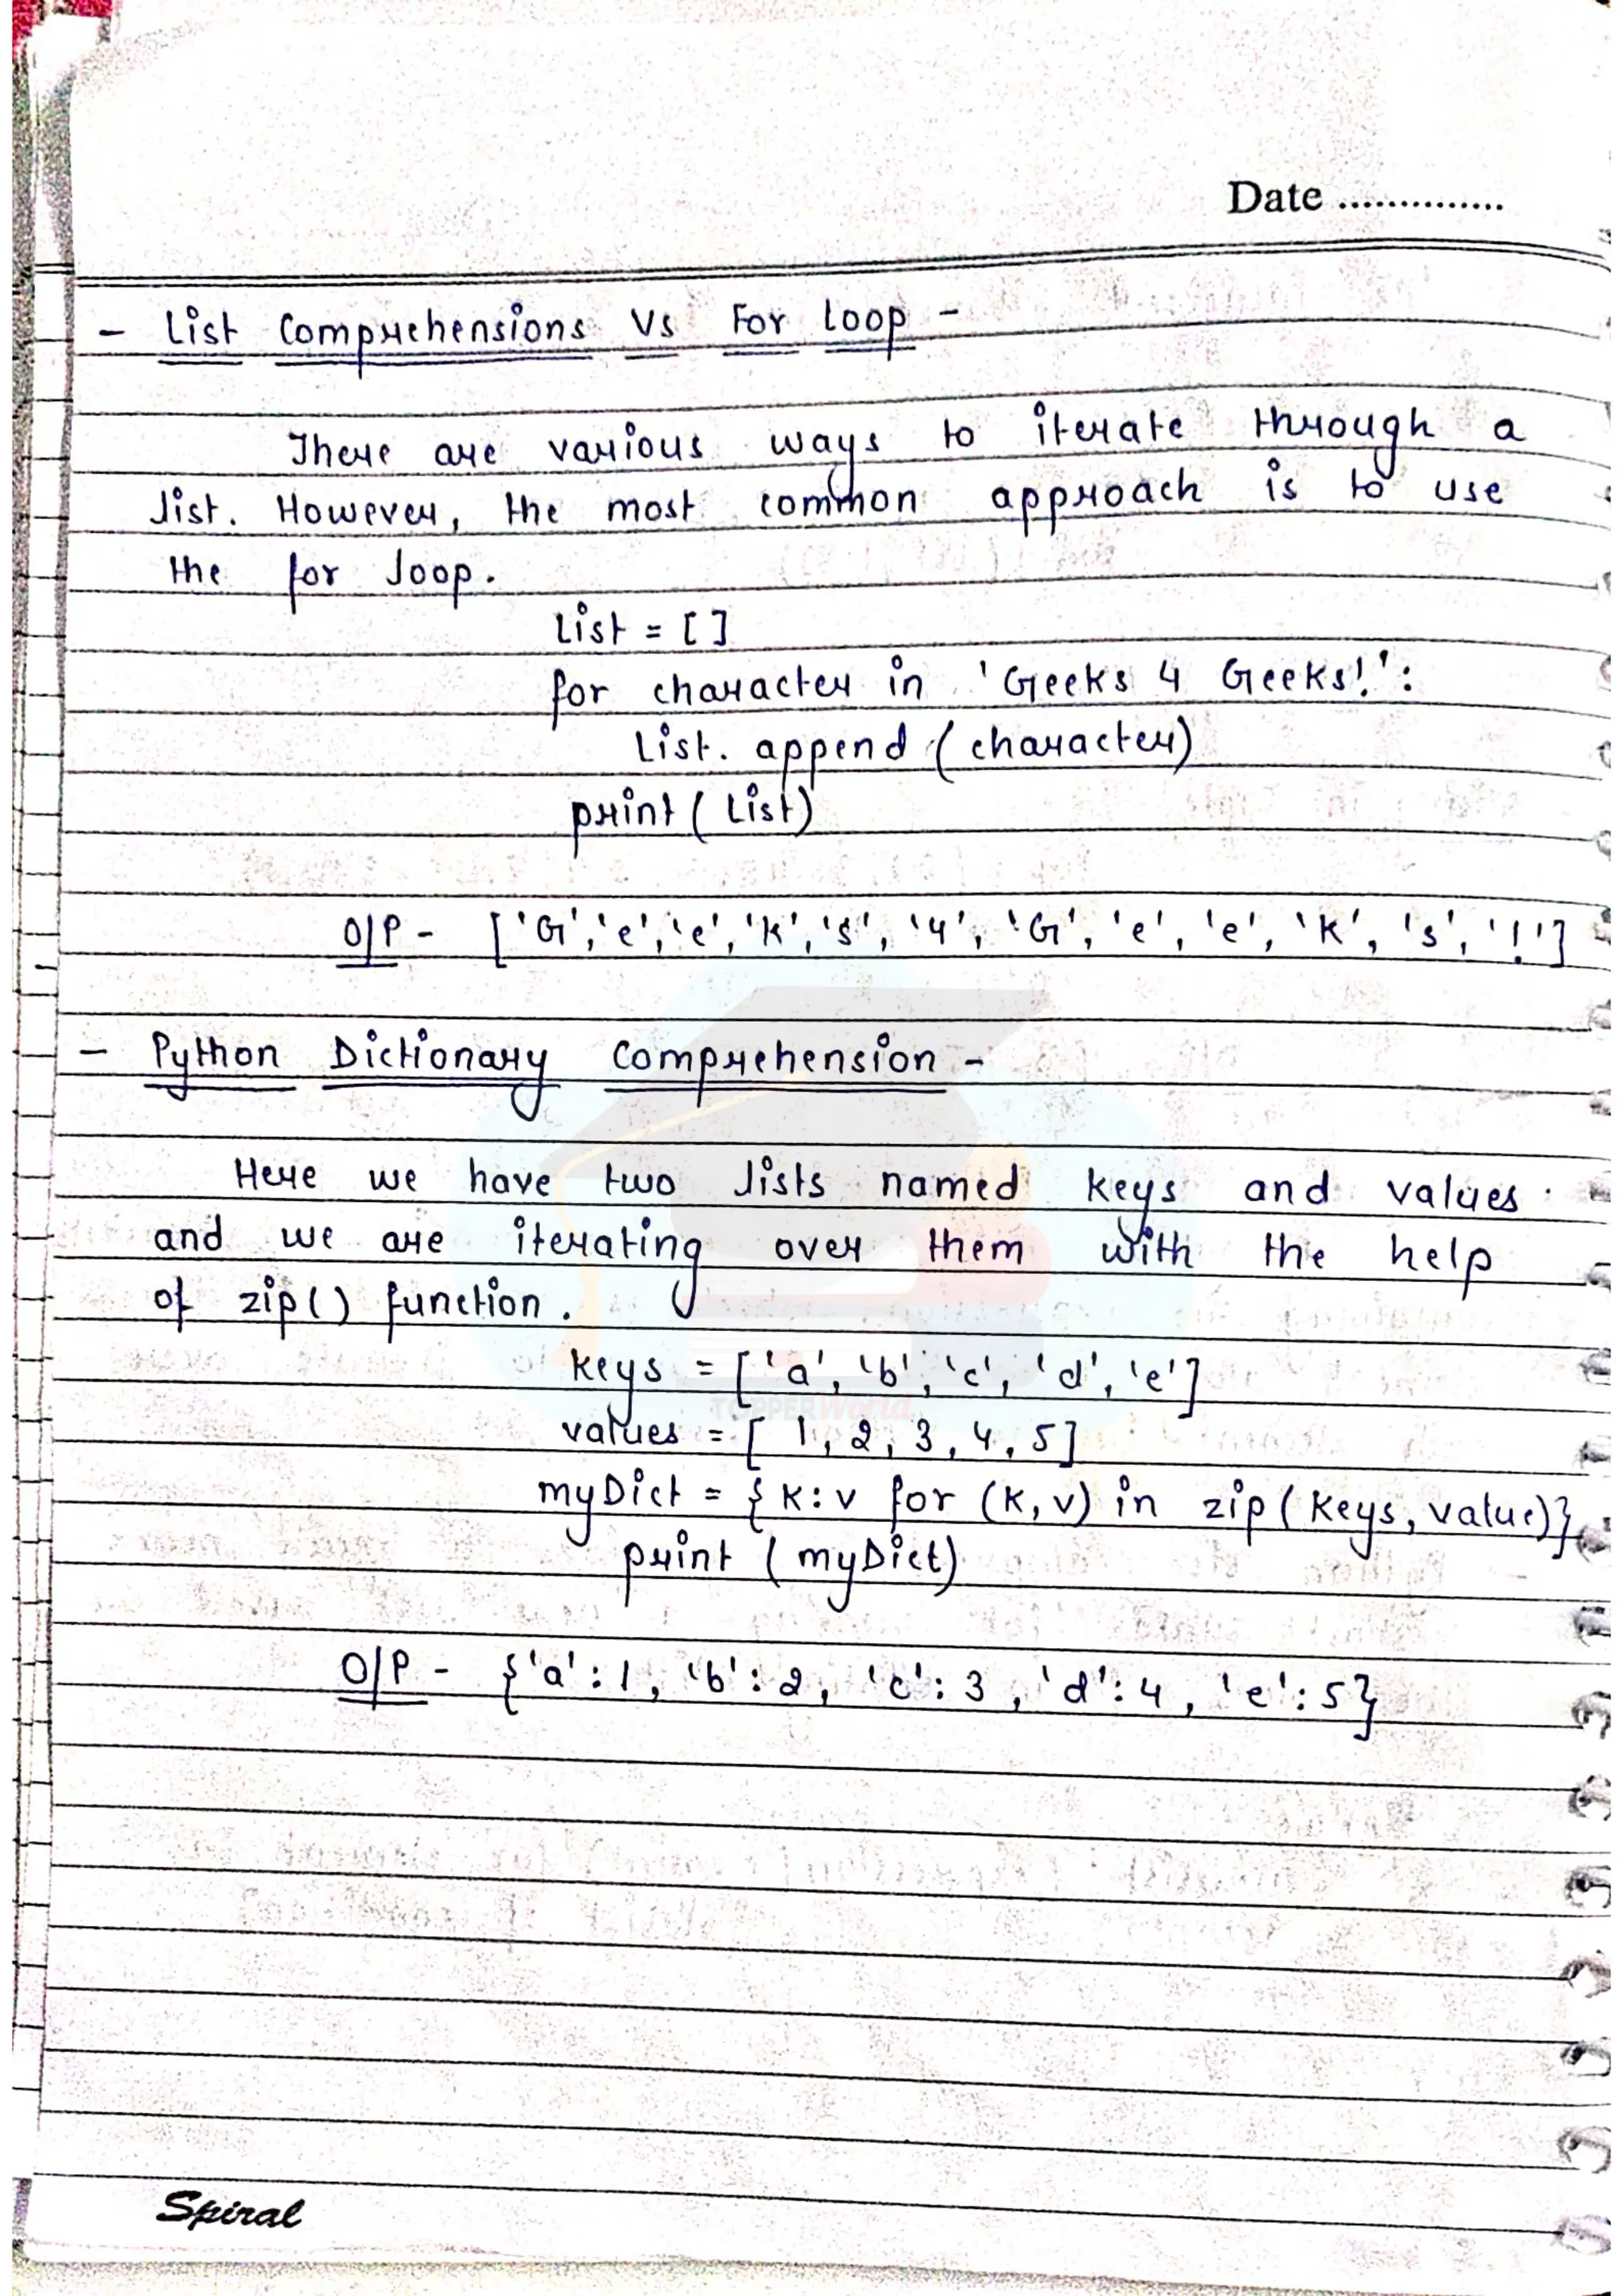 Date ..............
- List Comprehensions Vs For Loop -
There are various ways to iterate through a
list. However, the most common approach is to use
the for loop.
List = []
for character in 'Geeks 4 Geeks!':
List. append (character)
print( List)
O/P - ['G','e','e','k','s', '4', 'G', 'e', 'e', 'k', 's', '!']
- Python Dictionary Comprehension -
Here we have two lists named keys and values
and we are iterating over them with the help
of zip() function.
keys = ['a', 'b', 'c', 'd', 'e']
TOPPERWorld
values = [ 1, 2, 3, 4, 5]
myDict = { k:v for (k, v) in zip( keys, value)}
print ( myDict)
O/P - {'a':1, 'b':2, 'c':3, 'd':4, 'e':5}
Spiral